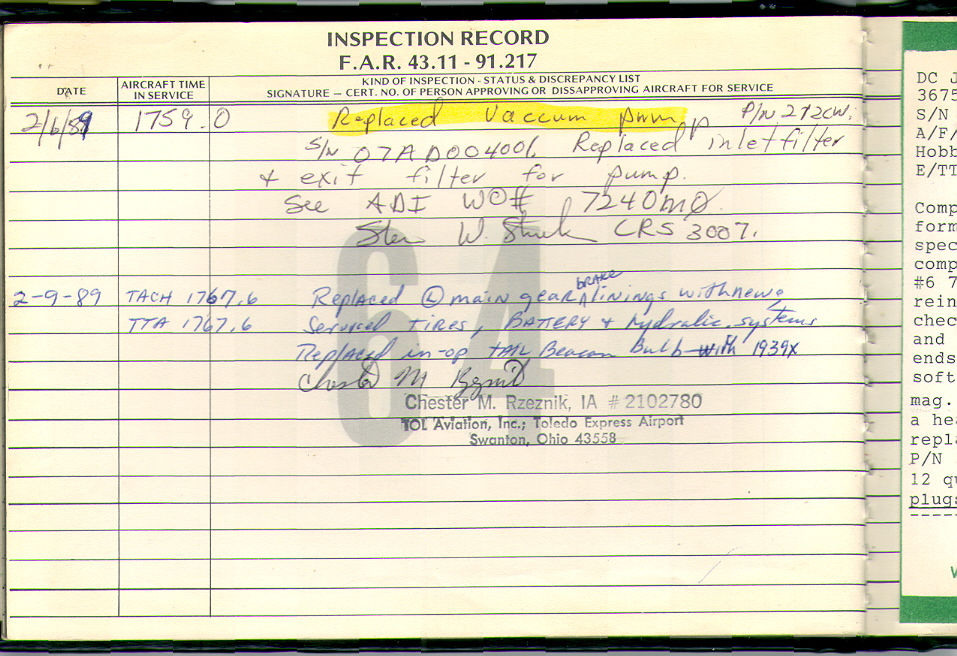 INSPECTION RECORD
F.A.R. 43.11 - 91.217
DATE
AIRCRAFT TIME
IN SERVICE
KIND OF INSPECTION - STATUS & DISCREPANCY LIST
SIGNATURE — CERT. NO. OF PERSON APPROVING OR DISSAPPROVING AIRCRAFT FOR SERVICE
2/6/89 1759.0 Replaced Vaccum pump P/N 212CW.
S/N 07AD004001. Replaced inlet filter
& exit filter for pump.
See ADI WO# 7240mØ
W. CRS 3007.
64
2-9-89 TACH 1767.6 Replaced Ⓛ main gear BRAKE linings with new
TTA 1767.6 Serviced TIRES, BATTERY & hydralic systems
Replaced in-op tAIL Beacon Bulb with 1939X
Chester M
Chester M. Rzeznik, IA # 2102780
TOL Aviation, Inc.; Toledo Express Airport
Swanton, Ohio 43558
DC J
3675
S/N
A/F/
Hobb
E/TT
Comp
form
spec
comp
#6 7
rein
chec
and
ends
soft
mag.
a hea
repla
P/N
12 qu
plugs